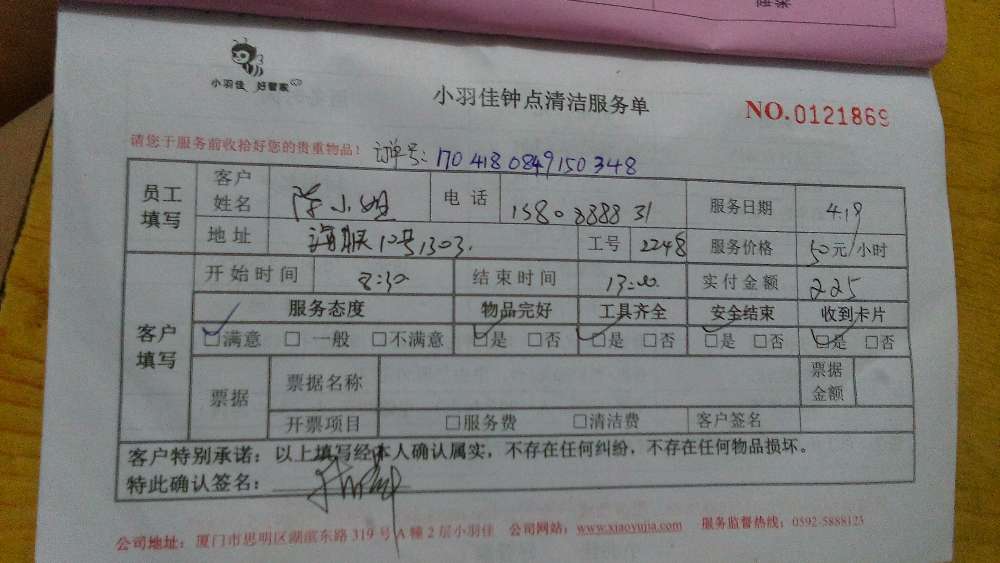 小羽佳 好管家
小羽佳钟点清洁服务单
NO.0121869
请您于服务前收拾好您的贵重物品！ 订单号：1704180849150348
员工填写 客户姓名 陈小姐 电话 服务日期 4.19
地址 10号1303. 工号 2248 服务价格 50元/小时
客户填写 开始时间 8:30 结束时间 13:00 实付金额 225
服务态度 物品完好 工具齐全 安全结束 收到卡片
☑满意 □一般 □不满意 ☑是 □否 ☑是 □否 ☑是 □否 ☑是 □否
票据 票据名称 票据金额
开票项目 □服务费 □清洁费 客户签名
客户特别承诺：以上填写经本人确认属实，不存在任何纠纷，不存在任何物品损坏。
特此确认签名：
公司地址：厦门市思明区湖滨东路319号A幢2层小羽佳 公司网站：www.xiaoyujia.com 服务监督热线：0592-5888123